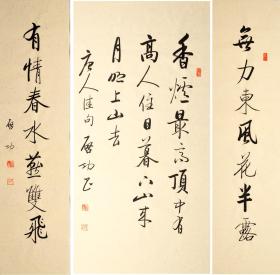 無力東風花半露
香爐最高頂中有
高人住日暮下山來
月明上山去
唐人佳句 啟功書
有情春水燕雙飛
啟功